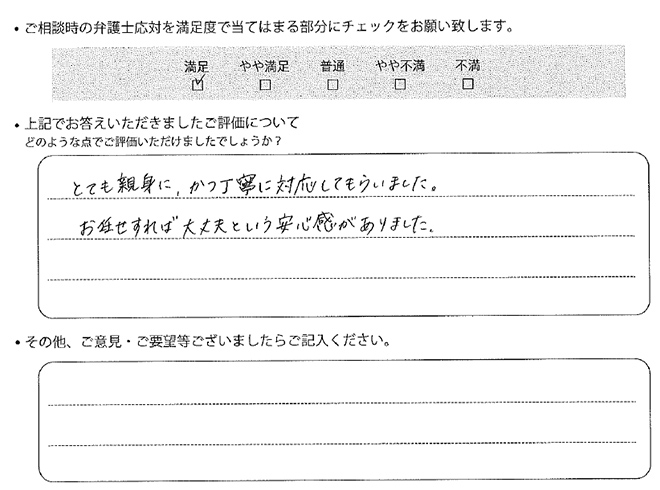 ・ご相談時の弁護士応対を満足度で当てはまる部分にチェックをお願い致します。
満足 やや満足 普通 やや不満 不満
☑ □ □ □ □
・上記でお答えいただきましたご評価について
どのような点でご評価いただけましたでしょうか？
とても親身に、かつ丁寧に対応してもらいました。
お任せすれば大丈夫という安心感がありました。
・その他、ご意見・ご要望等ございましたらご記入ください。